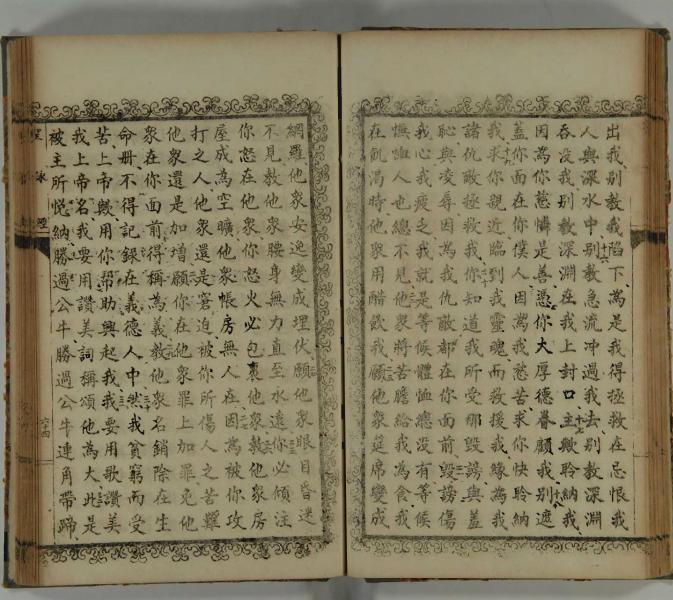 出我別教我陷下為是我得拯救在忌恨我
人與深水中別教急流冲過我去別教深淵
吞沒我別教深淵在我上封口主歟聆納我
因為你慈憐是善憑你大厚德眷顧我別遮
蓋你面在你僕人因為我愁苦求你快聆納
我求你親近臨到我靈魂而救援我緣為我
諸仇敵拯救我你知道我所受那毀謗與羞
恥與凌辱因為我仇敵都在你面前毀謗傷
我心我疲乏我就是等候體恤總沒有等候
憮恤人也總不見他衆將苦膽給我為食我
在飢渴時他衆用醋飲我願他衆筵席變成
網羅他衆安逸變成埋伏願他衆眼目昏迷
不見教他衆腰身無力直至永遠你必傾注
你怒在他衆你怒火必包裹他衆教他衆房
屋成為空曠他衆帳房無人在因為被你攻
打之人他衆還是窘迫被你所傷人之苦難
他衆還是加增願你在他衆罪上加罪免他
衆在你面前得稱為義教他衆名銷除在生
命冊不得記錄在義德人中然我貧窮而受
苦上帝歟用你帮助興起我我要用歌讚美
我上帝名我要用讚美詞稱頌他為大此是
被主所悅納勝過公牛勝過公牛連角帶蹄
聖詠經
六十四